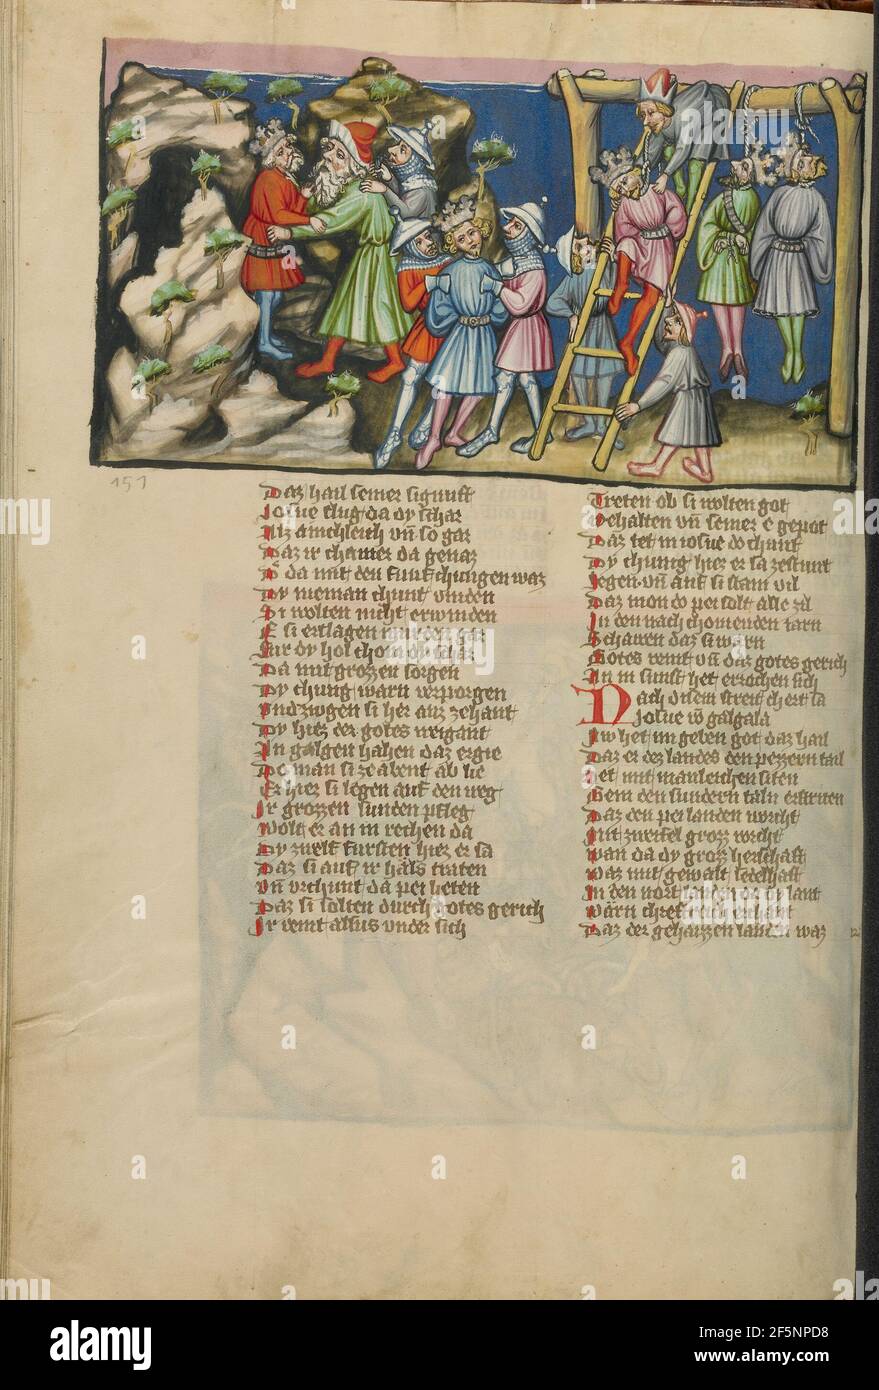 151
Daz hail seiner signuft
Josue slug da dy schar
Als amchleich vn so gar
Daz ir chainer da genaz
Da mit den funf chungen waz
Dy nieman chunt vinden
Si wolten nicht erwinden
E si erslagen wurden gar
Fur dy hol chom dy schar
Da mit grozzen sorgen
Dy chung warn verporgen
Und zugen si her auz zehant
Dy hiez der gotes weigant
An galgen hahen daz ergie
Do man si ze abent ab lie
Er hiez si legen auf den weg
Ir grozzen sunden pfleg
Wolt er an in rechen da
Dy zwelf fursten hiez er sa
Daz si auf ir häls traten
Vn vrchunt da pei heten
Daz si solten durch gotes gerich
Ir veint allsus vnder sich
Treten ob si wolten got
Behalten vn seiner e gepot
Daz tet in iosue do chunt
Dy chunig hiez er sa zestunt
legen vn auf si stain vil
Daz man do pei solt alle zil
In den nach chomenden iarn
Schawen daz si warn
Gotes veint vn daz gotes gerich
An in sunst het errochen sich
Nach disem streit chert sa
Josue w galgala
Iw het im geben got daz hail
Daz er des landes den pezzern tail
Het mit manleichen siten
Gein den sundern taln erstriten
Daz den pei landen worcht
Mit zweifel grozz vorcht
Wan da dy grozz herschaft
Waz mit gewalt sedelhaft
In den nort landen do dy laut
Warn chreftreich erchant
Daz der gehaizzen landen waz
alamy
Image ID: 2F5NPD8
www.alamy.com